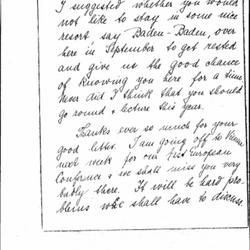 I suggested whether you would
not like to stay in some nice
resort say Baden-Baden, over
here in September to get rested
and give us the good chance
of knowing you here for a time
Never did I think that you should
go round & lecture this year.
Thanks ever so much for your
good letter. I am going off to
next week for our first European
Conference & we shall miss you very
badly there. It will be hard pro-
blems we shall have to discuss